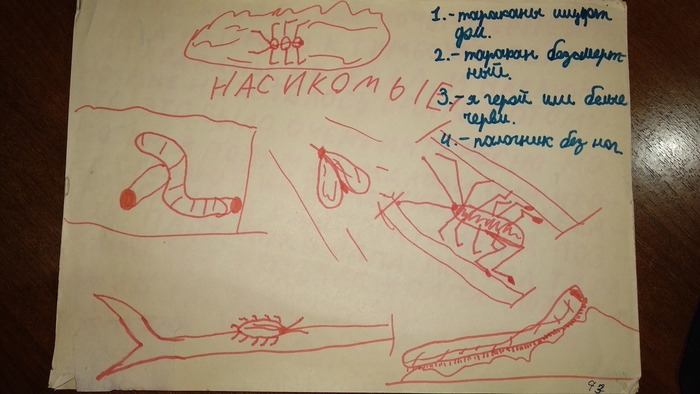 НАСИКОМЫЕ
1.-тараканы ищут
дом.
2.-таракан безсмерт-
ный.
3.-я герой или белые
черви.
4.-палочник без ног
93